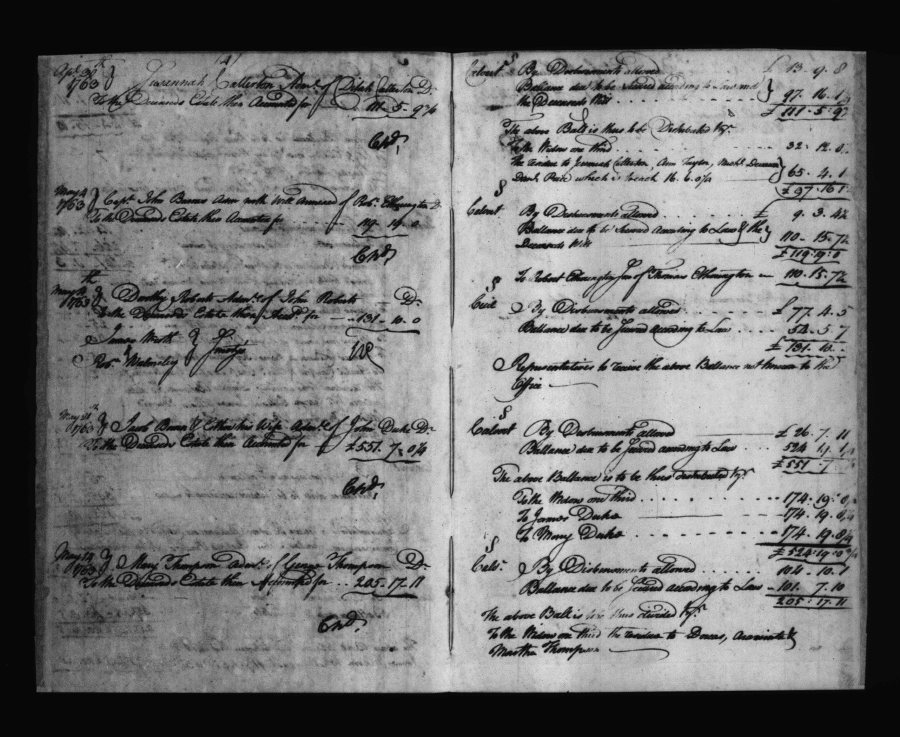 (4)
Apr 30th 1763 } Susannah Catterton Admx. of Dibab Catterton Dr.
To the Deceaseds Estate then Accounted for 111. 5. 9 3/4
Chd.
May 4 1763 } Capt. John Brome Admr with Will Annexed of Robt. Etherington Dr.
To the Deceaseds Estate then Accounted for 119. 19. 0
Chd.
1763 } Dorothy Roberts Admx. of John Roberts Dr.
To the Deceaseds Estate then Accd. for 131. 10. 0
James Wroth }
Robt. Walmsley } Suretys
May 1763 } Jacob Bowen & his Wife Admx. of John Duke Dr.
To the Deceaseds Estate then Accounted for £551. 7. 0 1/4
Chd.
May 24 1763 } Mary Thompson Admx. of George Thompson Dr.
To the Deceaseds Estate then Accounted for 205. 17. 11
Chd.
Calvert § By Disbursments allowed £ 13. 9. 8
Ballance due to be Secured according to Law and
the Deceaseds Will } 97. 16. 1
£ 111. 5. 9
The above Ballc. is thus to be Distributed Vizt.
To the Widows one third 32. 12. 0
The residue to Jeremiah Catterton, Ann Taylor, Michl.
which is to each 16. 6. 0 1/4 } 65. 4. 1
£ 97. 16. 1
Calvert § By Disbursments allowed £ 9. 3. 4 1/2
Ballance due to be Secured According to Law & the
Deceaseds Will } 110. 15. 7 1/2
£ 119. 19. 0
To Robert Etherington Son of Thomas Etherington 110. 15. 7 1/2
Cecil § By Disbursments allowed £ 77. 4. 5
Ballance due to be Secured according to Law 54. 5. 7
£ 131. 10.
Representatives to receive the above Ballance not known to this
Office
Calvert § By Disbursments allowed £ 26. 7. 11
Ballance due to be Secured according to Law 524. 19. 1 1/4
£ 551. 7
The above Ballance is to be thus distributed Vizt.
To the Widows one third 174. 19. 0
To James Duke 174. 19. 0
To Mary Duke 174. 19. 0
£ 524. 19. 0
§ By Disbursments allowed 104. 10. 1
Ballance due to be Secured according to Law 101. 7. 10
205. 17. 11
The above Ballc. is to be thus divided Vizt.
To the Widows one third the residue to Dorcas, &
Martha Thompson